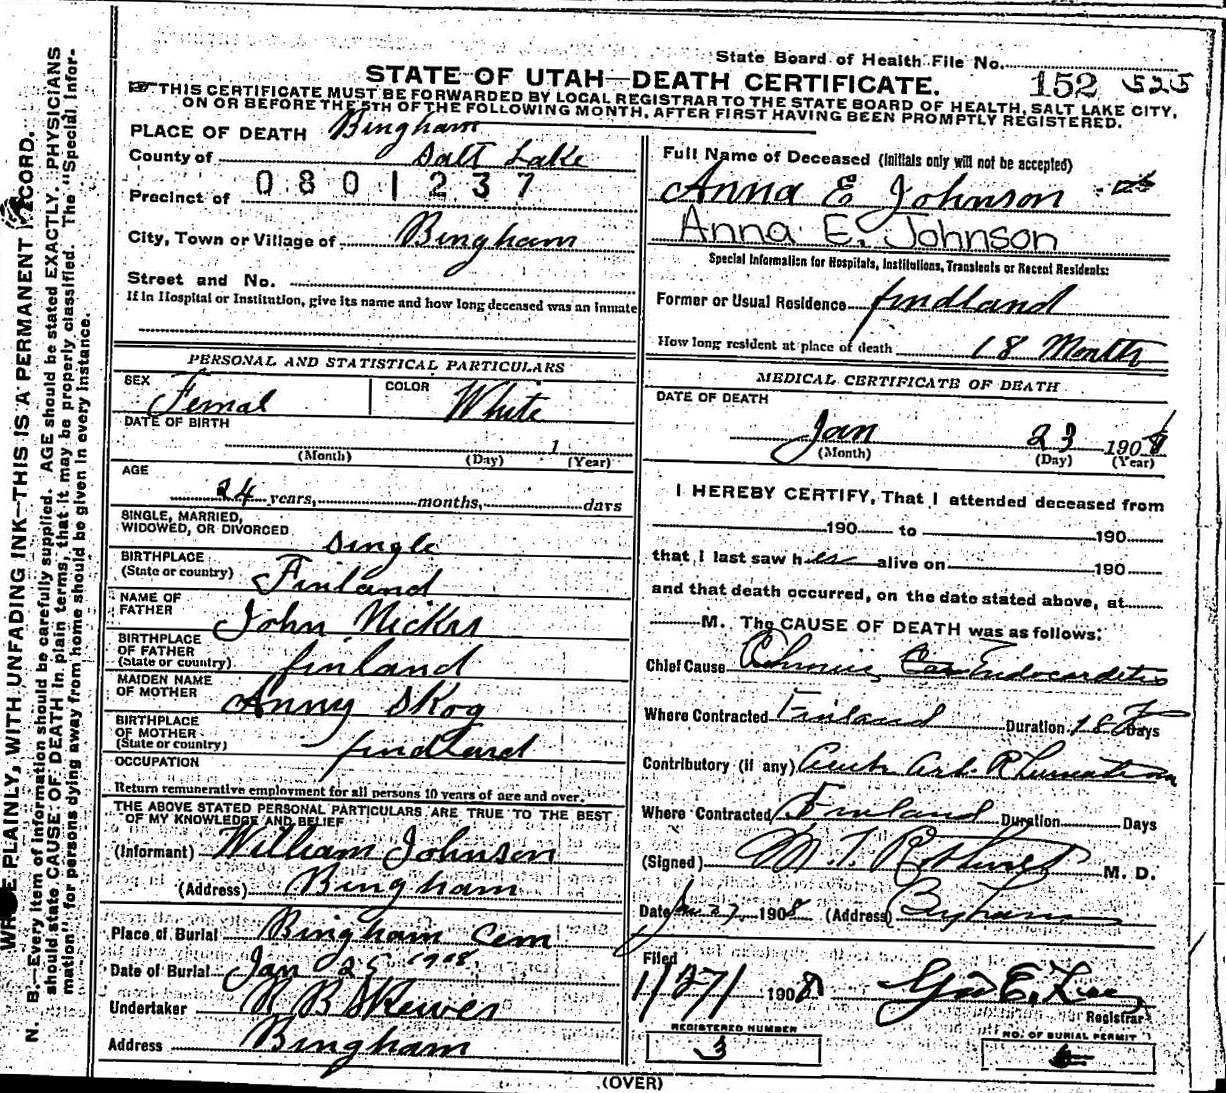 State Board of Health File No.
STATE OF UTAH—DEATH CERTIFICATE. 152 525
THIS CERTIFICATE MUST BE FORWARDED BY LOCAL REGISTRAR TO THE STATE BOARD OF HEALTH, SALT LAKE CITY,
ON OR BEFORE THE 5TH OF THE FOLLOWING MONTH, AFTER FIRST HAVING BEEN PROMPTLY REGISTERED.
PLACE OF DEATH Bingham
County of Salt Lake
0801237
Precinct of
City, Town or Village of Bingham
Street and No.
If in Hospital or Institution, give its name and how long deceased was an inmate
PERSONAL AND STATISTICAL PARTICULARS
SEX Femal COLOR White
DATE OF BIRTH
1
(Month) (Day) (Year)
AGE
24 years, months, days
SINGLE, MARRIED,
WIDOWED, OR DIVORCED Single
BIRTHPLACE
(State or country) Finland
NAME OF
FATHER John Nickas
BIRTHPLACE
OF FATHER
(State or country) finland
MAIDEN NAME
OF MOTHER Anny Skog
BIRTHPLACE
OF MOTHER
(State or country) findland
OCCUPATION
Return remunerative employment for all persons 10 years of age and over.
THE ABOVE STATED PERSONAL PARTICULARS ARE TRUE TO THE BEST
OF MY KNOWLEDGE AND BELIEF
(Informant) William Johnson
(Address) Bingham
Place of Burial Bingham Cem
Date of Burial Jan 25 1908
Undertaker R B Skewes
Address Bingham
Full Name of Deceased (Initials only will not be accepted)
Anna E Johnson
Anna E. Johnson
Special Information for Hospitals, Institutions, Transients or Recent Residents:
Former or Usual Residence findland
How long resident at place of death 18 Month
MEDICAL CERTIFICATE OF DEATH
DATE OF DEATH
Jan 23 1908
(Month) (Day) (Year)
I HEREBY CERTIFY, That I attended deceased from
190 to 190
that I last saw her alive on 190
and that death occurred, on the date stated above, at
M. The CAUSE OF DEATH was as follows:
Chief Cause Chronic Endocarditis
Where Contracted Finland Duration 18 Days
Contributory (if any) Acute Art. Rheumatism
Where Contracted Finland Duration Days
(Signed) M. D.
Date Jan 27 1908 (Address) Bingham
Filed
1/27/ 1908 Geo E. Lee
Registrar
REGISTERED NUMBER
3
NO. OF BURIAL PERMIT
(OVER)
WRITE PLAINLY, WITH UNFADING INK—THIS IS A PERMANENT RECORD.
N. B.—Every item of information should be carefully supplied. AGE should be stated EXACTLY. PHYSICIANS
should state CAUSE OF DEATH in plain terms, that it may be properly classified. The "Special Infor-
mation" for persons dying away from home should be given in every instance.